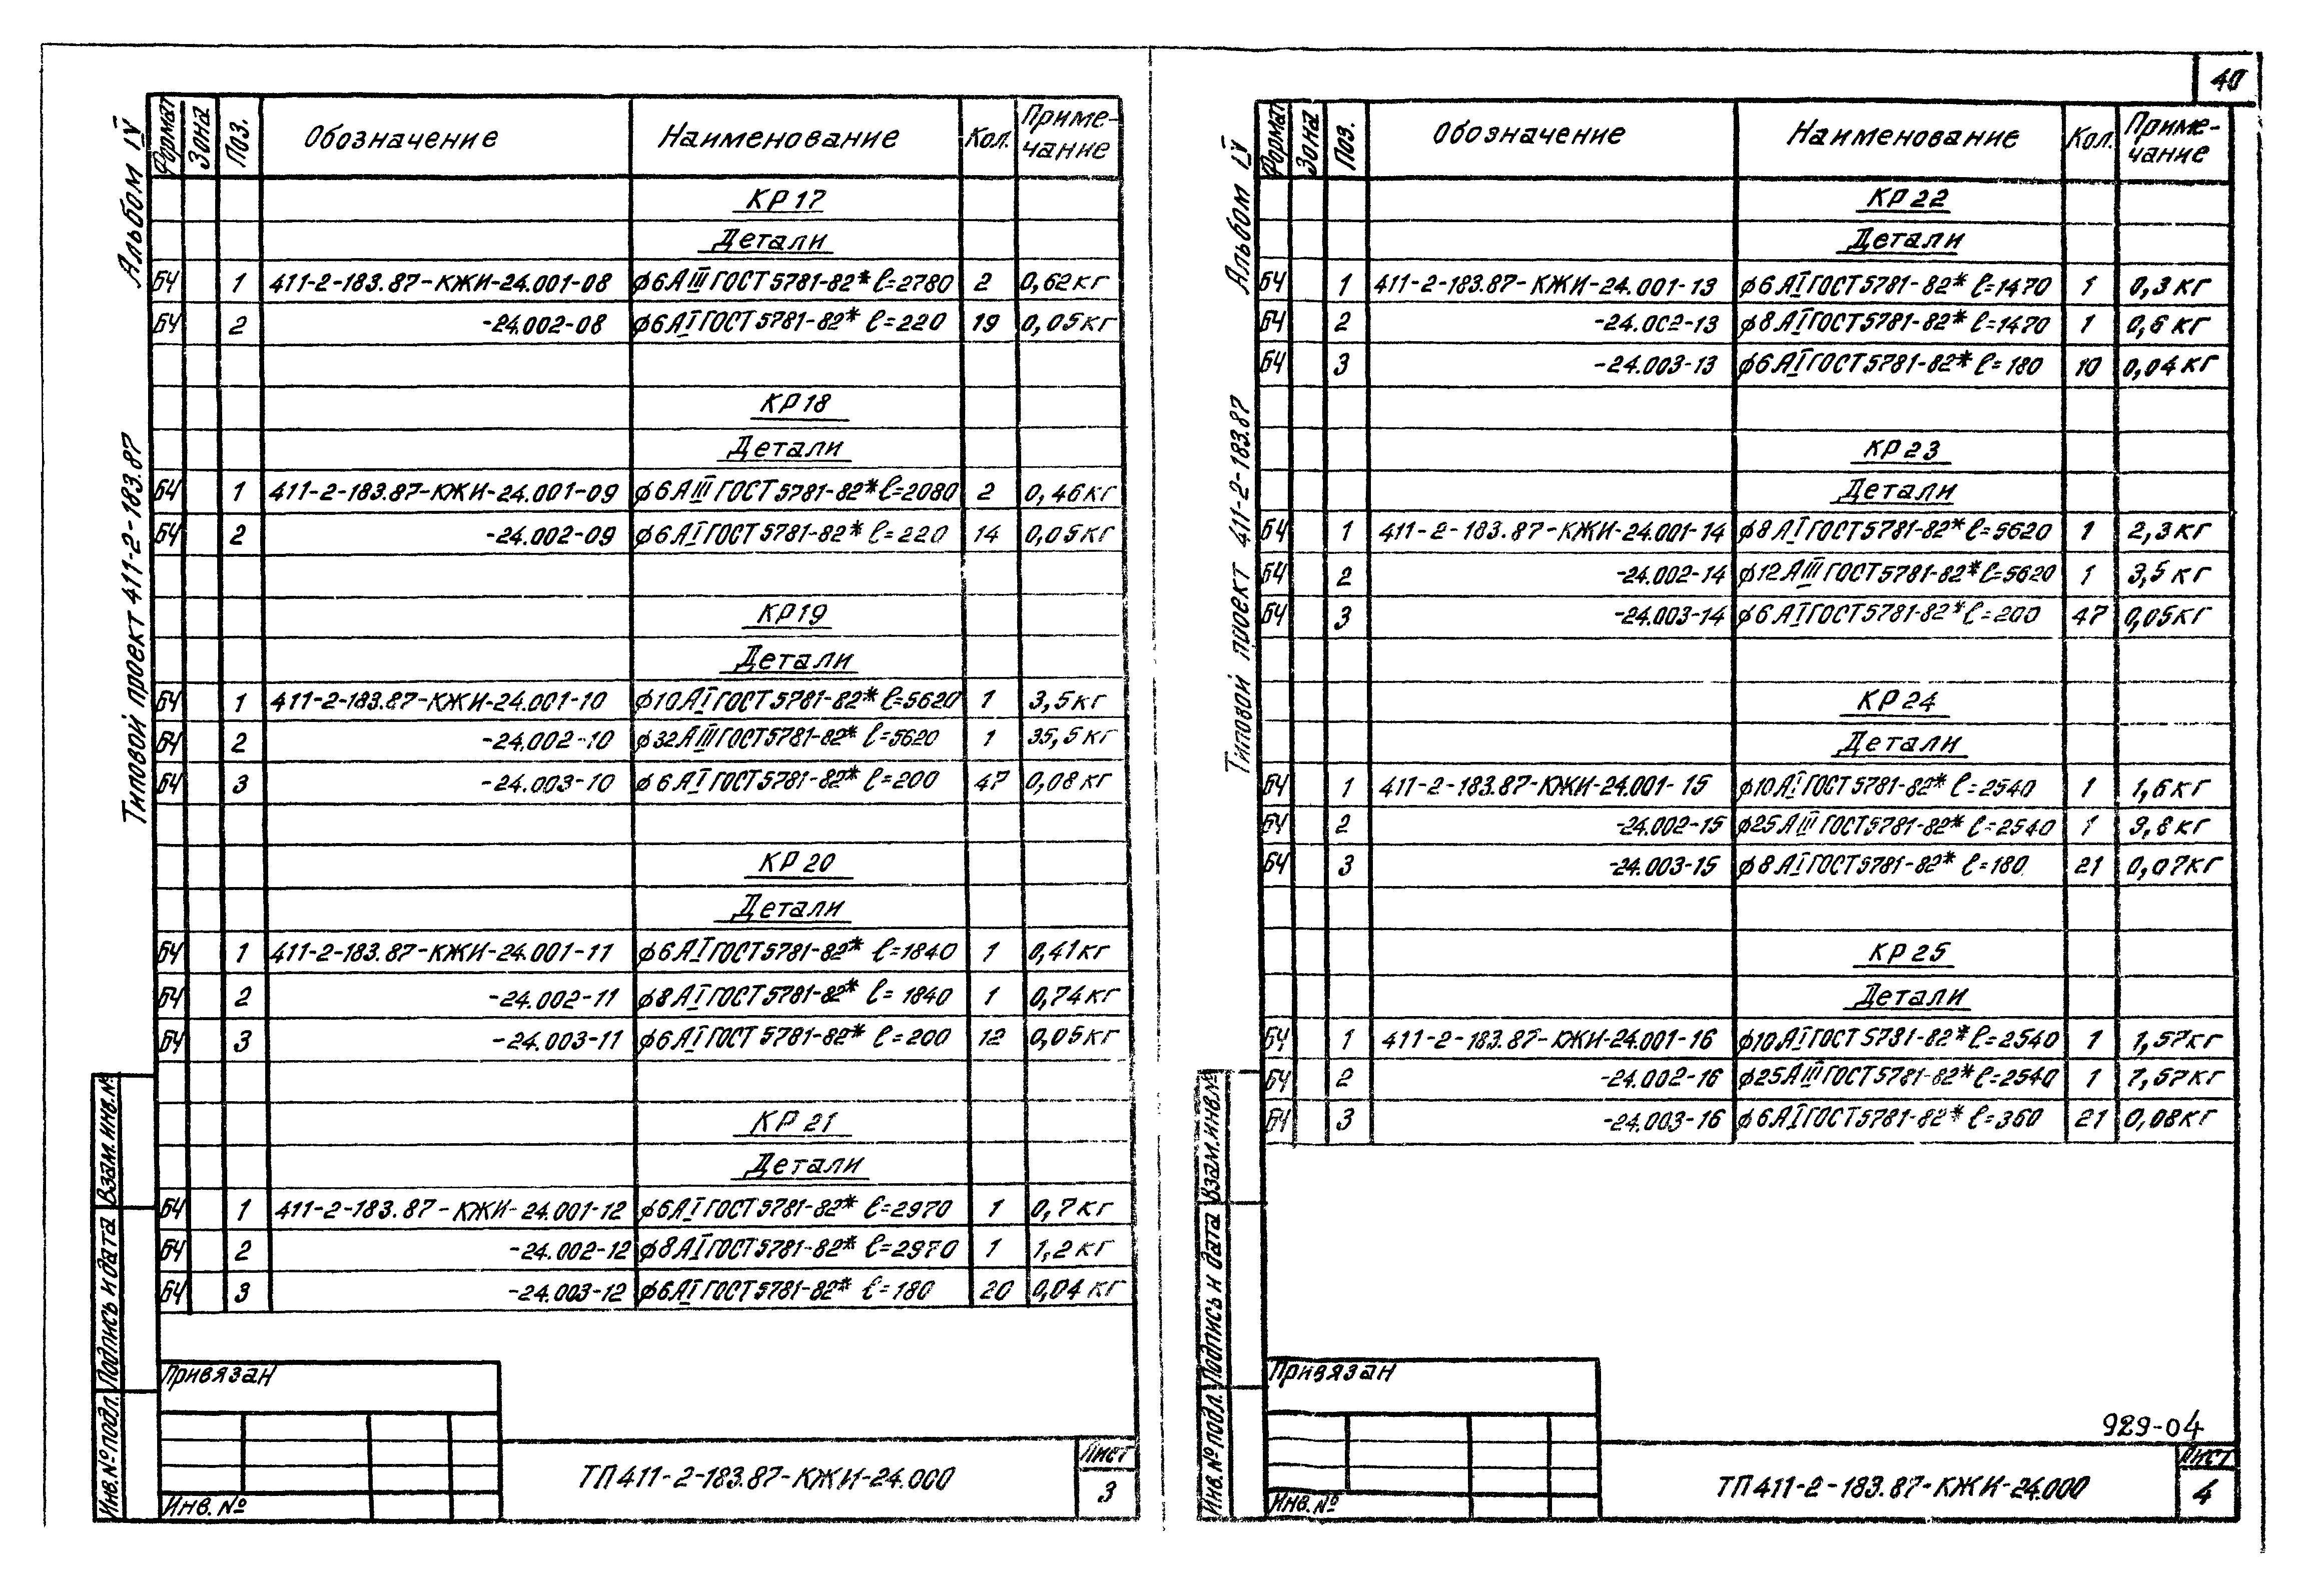 40
Альбом IV
Типовой проект 411-2-183.87
Формат Зона Поз. Обозначение Наименование Кол. Приме-
чание
КР 17
Детали
БЧ 1 411-2-183.87-КЖИ-24.001-08 ϕ6АIII ГОСТ 5781-82* ℓ=2780 2 0,62кг
БЧ 2 -24.002-08 ϕ6АI ГОСТ 5781-82* ℓ=220 19 0,05кг
КР 18
Детали
БЧ 1 411-2-183.87-КЖИ-24.001-09 ϕ6АIII ГОСТ 5781-82* ℓ=2080 2 0,46кг
БЧ 2 -24.002-09 ϕ6АI ГОСТ 5781-82* ℓ=220 14 0,05кг
КР 19
Детали
БЧ 1 411-2-183.87-КЖИ-24.001-10 ϕ10АI ГОСТ 5781-82* ℓ=5620 1 3,5кг
БЧ 2 -24.002-10 ϕ32АIII ГОСТ 5781-82* ℓ=5620 1 35,5кг
БЧ 3 -24.003-10 ϕ6АI ГОСТ 5781-82* ℓ=200 47 0,08кг
КР 20
Детали
БЧ 1 411-2-183.87-КЖИ-24.001-11 ϕ6АI ГОСТ 5781-82* ℓ=1840 1 0,41кг
БЧ 2 -24.002-11 ϕ8АI ГОСТ 5781-82* ℓ=1840 1 0,74кг
БЧ 3 -24.003-11 ϕ6АI ГОСТ 5781-82* ℓ=200 12 0,05кг
КР 21
Детали
БЧ 1 411-2-183.87-КЖИ-24.001-12 ϕ6АI ГОСТ 5781-82* ℓ=2970 1 0,7кг
БЧ 2 -24.002-12 ϕ8АI ГОСТ 5781-82* ℓ=2970 1 1,2кг
БЧ 3 -24.003-12 ϕ6АI ГОСТ 5781-82* ℓ=180 20 0,04кг
Инв.№ подл. Подпись и дата Взам.инв.№
Привязан
Инв.№
ТП 411-2-183.87-КЖИ-24.000
Лист
3
Альбом IV
Типовой проект 411-2-183.87
Формат Зона Поз. Обозначение Наименование Кол. Приме-
чание
КР 22
Детали
БЧ 1 411-2-183.87-КЖИ-24.001-13 ϕ6АI ГОСТ 5781-82* ℓ=1470 1 0,3кг
БЧ 2 -24.002-13 ϕ8АI ГОСТ 5781-82* ℓ=1470 1 0,6кг
БЧ 3 -24.003-13 ϕ6АI ГОСТ 5781-82* ℓ=180 10 0,04кг
КР 23
Детали
БЧ 1 411-2-183.87-КЖИ-24.001-14 ϕ8АI ГОСТ 5781-82* ℓ=5620 1 2,3кг
БЧ 2 -24.002-14 ϕ12АIII ГОСТ 5781-82* ℓ=5620 1 3,5кг
БЧ 3 -24.003-14 ϕ6АI ГОСТ 5781-82* ℓ=200 47 0,05кг
КР 24
Детали
БЧ 1 411-2-183.87-КЖИ-24.001-15 ϕ10АI ГОСТ 5781-82* ℓ=2540 1 1,6кг
БЧ 2 -24.002-15 ϕ25АIII ГОСТ 5781-82* ℓ=2540 1 9,8кг
БЧ 3 -24.003-15 ϕ8АI ГОСТ 5781-82* ℓ=180 21 0,07кг
КР 25
Детали
БЧ 1 411-2-183.87-КЖИ-24.001-16 ϕ10АI ГОСТ 5781-82* ℓ=2540 1 1,57кг
БЧ 2 -24.002-16 ϕ25АIII ГОСТ 5781-82* ℓ=2540 1 7,57кг
БЧ 3 -24.003-16 ϕ6АI ГОСТ 5781-82* ℓ=360 21 0,08кг
Инв.№ подл. Подпись и дата Взам.инв.№
Привязан
Инв.№
929-04
ТП 411-2-183.87-КЖИ-24.000
Лист
4